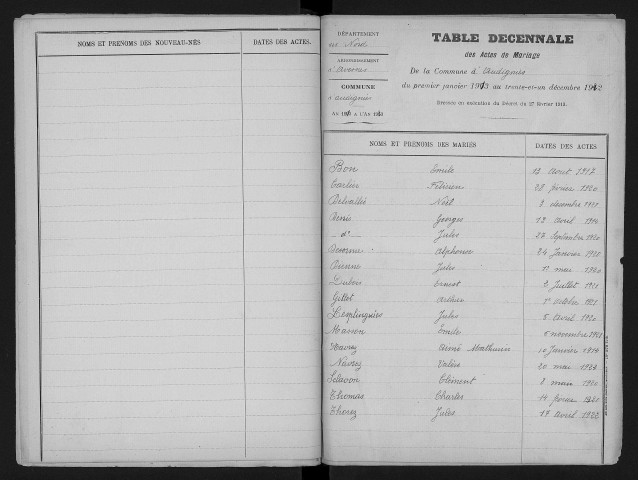 NOMS ET PRENOMS DES NOUVEAU-NÉS DATES DES ACTES.
DÉPARTEMENT
du Nord
ARRONDISSEMENT
d'Avesnes
COMMUNE
d'Audignies
TABLE DECENNALE
des Actes de Mariage
De la Commune d'Audignies
du premier janvier 1913 au trente-et-un décembre 1922
Dressée en exécution du Décret du 27 février 1913.
NOMS ET PRENOMS DES MARIÉS DATES DES ACTES
Bon Emile 13 Aout 1917
Carlier Félicien 28 février 1920
Delvallée Noël 3 décembre 1921
Denis Georges 12 Avril 1914
- d° - Jules 27 Septembre 1920
Alphonse 24 Janvier 1920
Jules 1er mai 1920
Dubois Ernest 3 Juillet 1920
Gillot Arthur 1er Octobre 1921
Lesplingnies Jules 5 Avril 1920
Masson Emile 5 novembre 1921
Navez Aimé Mathurin 10 Janvier 1914
Navez Valère 20 mai
Clément 8 mars 1920
Thomas Charles 14 février 1920
Thorez Jules 17 avril 1922